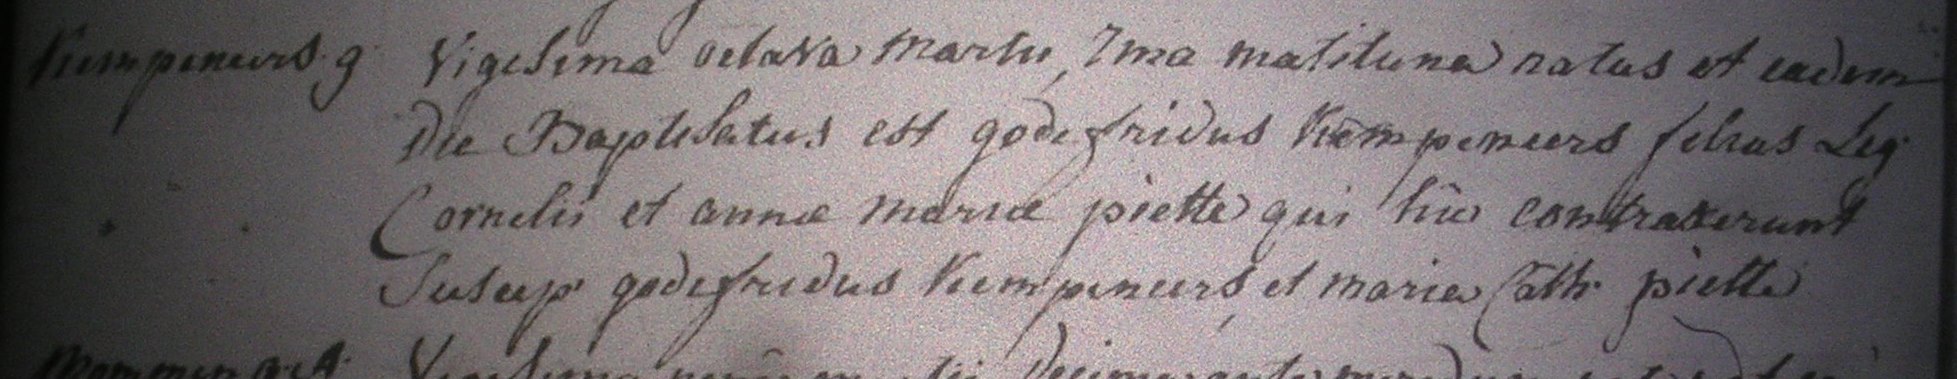 Kempeneers. g. Vigesima octava Martii, 7ma matituna natus et eadem
Die Baptisatus est godefridus Kempeneers filius Leg.
Cornelii et annæ mariæ piette qui hic contraxerunt
Suscep. godefridus Kempeneers et maria Cath. piette
Vigesima